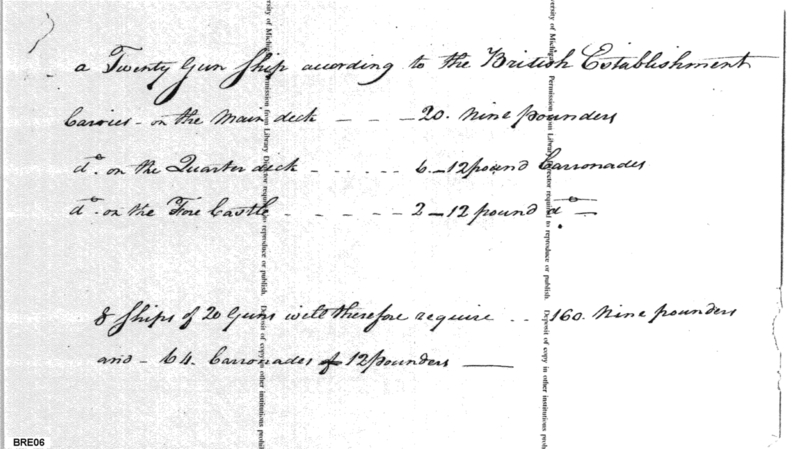 a Twenty Gun Ship according to the British Establishment
Carries - on the Main deck - - - 20. Nine pounders
do. on the Quarter deck - - - - - 6 - 12 pound Carronades
do. on the Fore Castle - - - - - 2 - 12 pound do -
8 Ships of 20 Guns will therefore require - - 160. Nine pounders
and - 64. Carronades of 12 pounders -
versity of Michigan Permission from Library Director required to reproduce or publish. Deposit of copy in other institutions prohib
versity of Michigan Permission from Library Director required to reproduce or publish. Deposit of copy in other institutions proh
BRE06